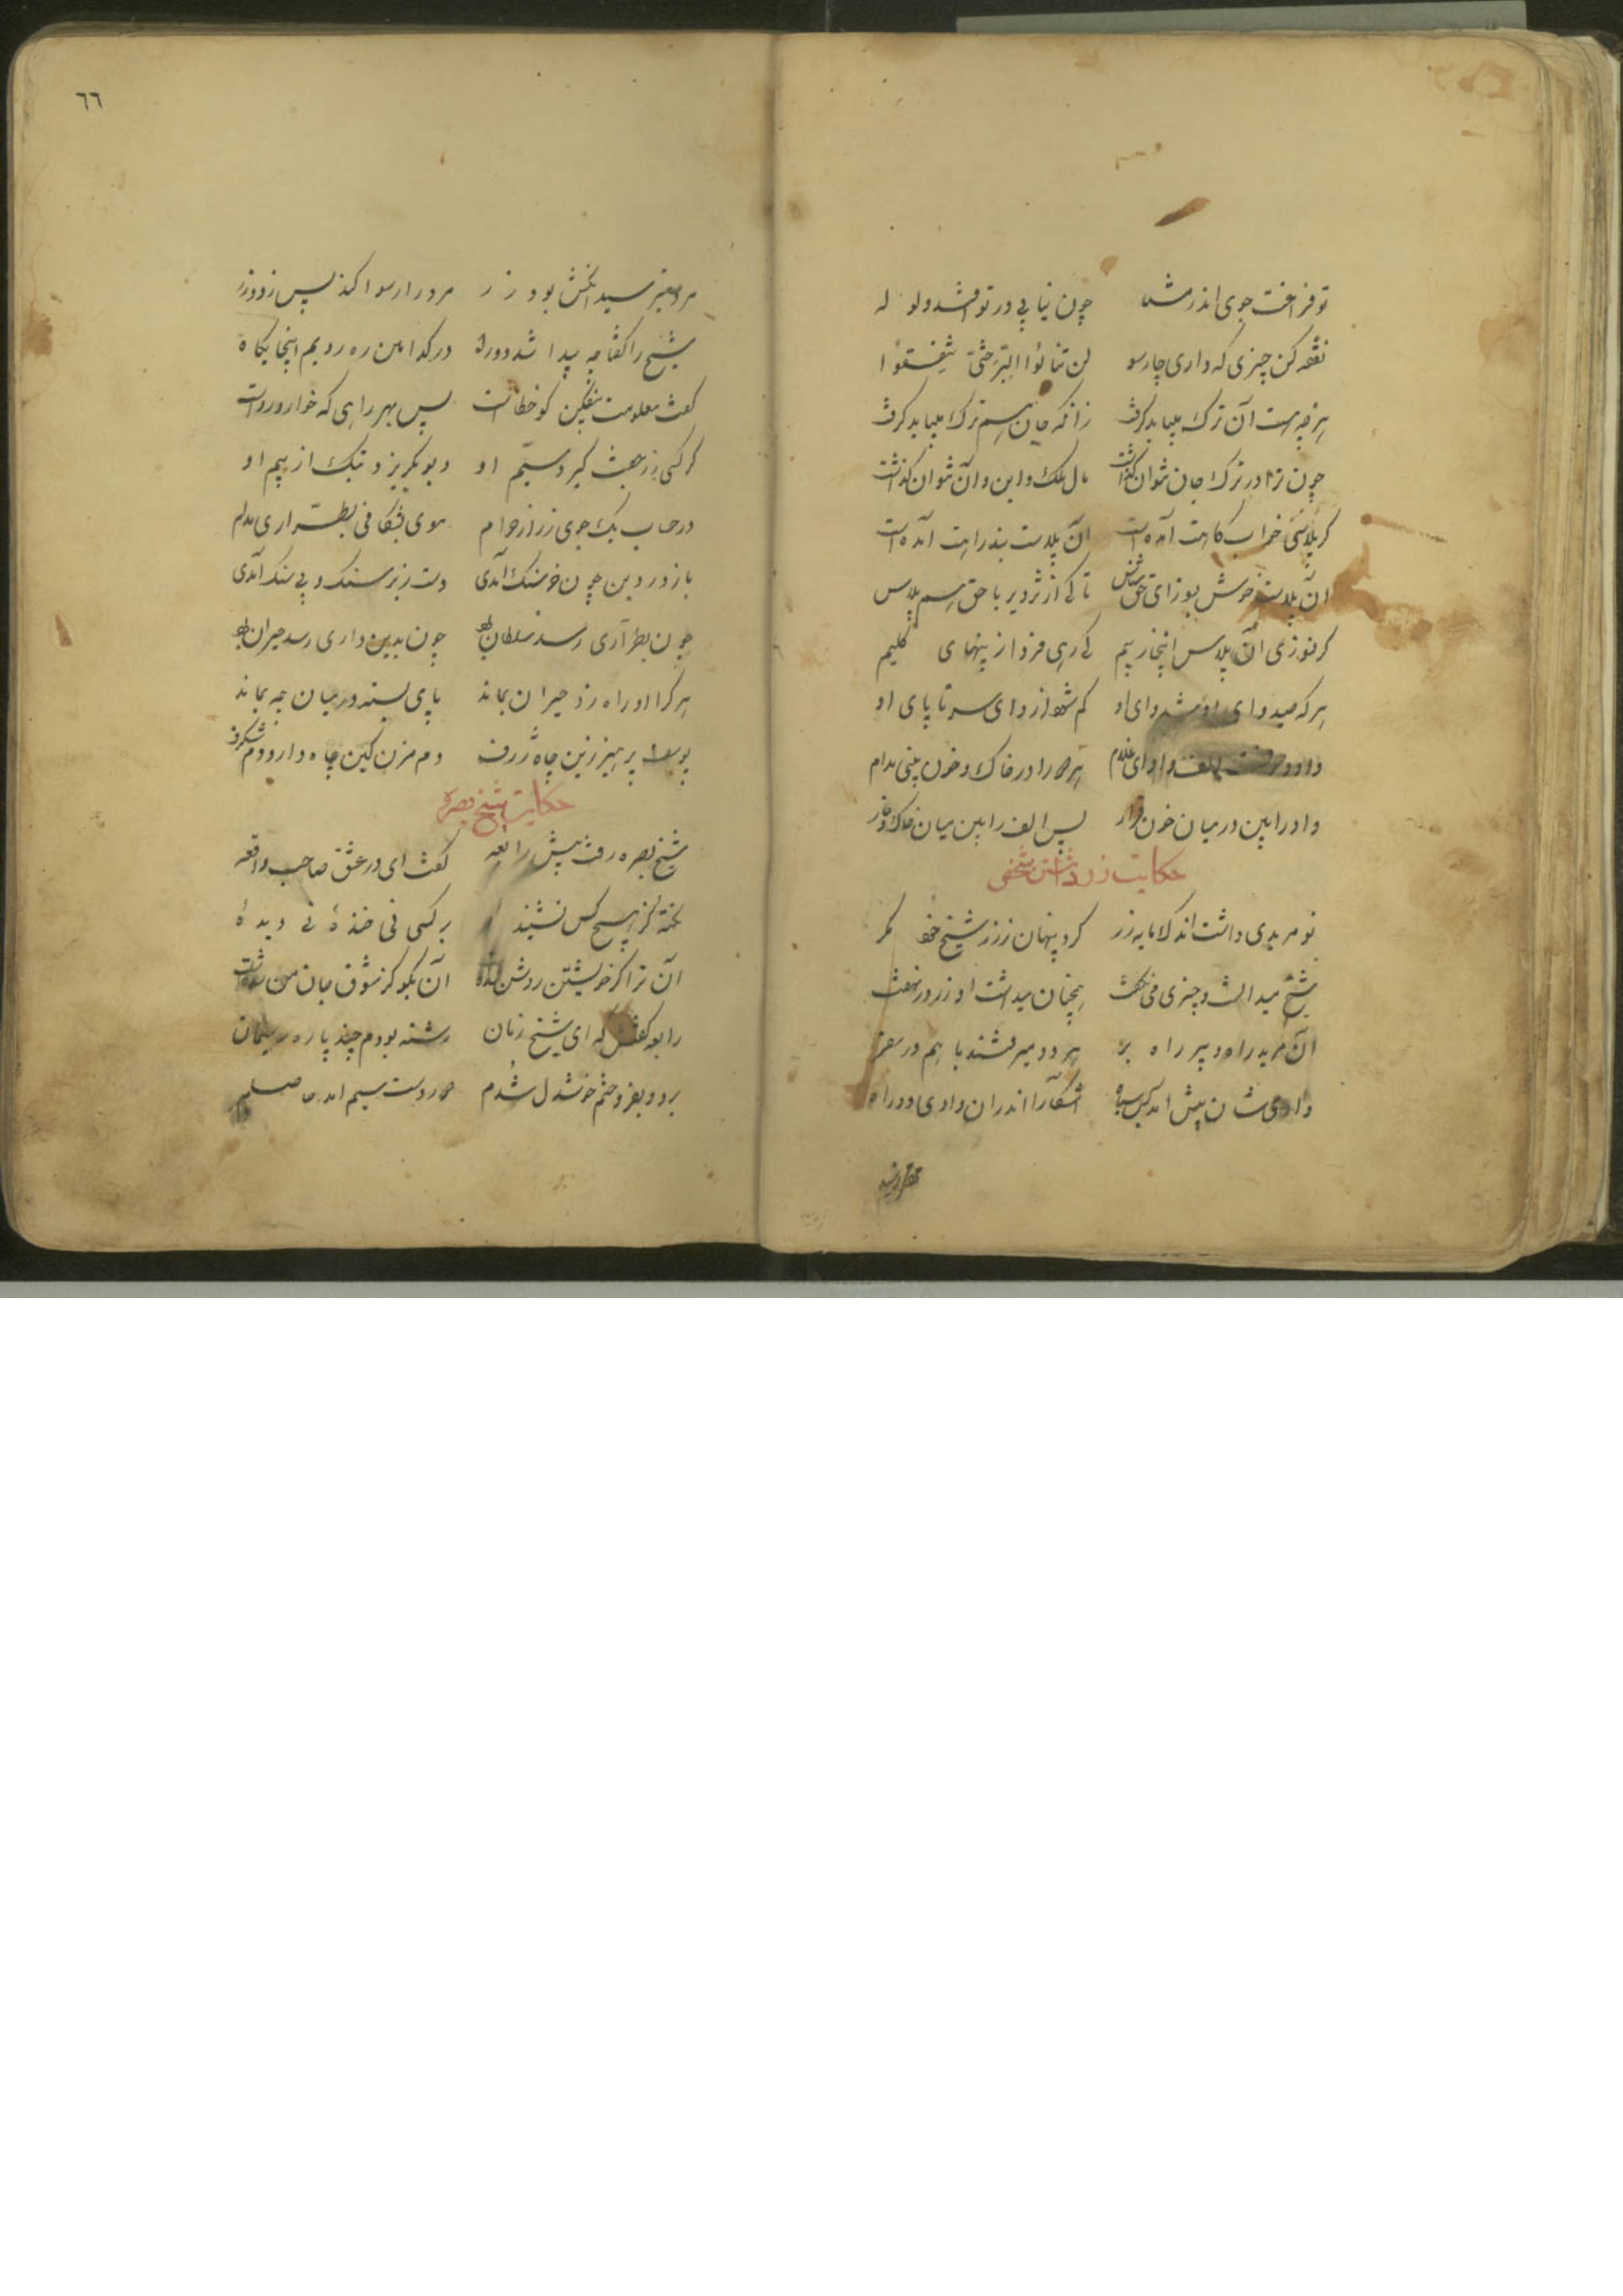 تو فراغت جوی اندر مشغله چون نیابی در تو افتد ولوله
نفقه کن چیزی که داری چارسو لن تنالوا البر حتی تنفقوا
هرچه هست آن ترک میباید گرفت زانکه جان هم ترک میباید گرفت
چون ترا در ترک جان نتوان گذاشت مال ملک و این و آن نتوان گذاشت
گر پلاسی خوابگاهت آمده است آن پلاست بند راهت آمده است
آن پلاست خوش بسوز ای حق شناس تا کی از تزویر با حق هم پلاس
گر نسوزی آن پلاس اینجا ز بیم کی رهی فردا ز پهنای گلیم
هرکه صید وای او شد وای او گم شود از وای سر تا پای او
واو و الف وا وای غلام هر دو را در خاک و خون بینی مدام
واو را بین در میان خون قرار پس الف را بین میان خاک خوار
حکایت زر داشتن شخصی
نو مریدی داشت اندک مایه زر کرد پنهان زر ز شیخ خود مگر
شیخ میدانست و چیزی می نگفت همچنان میداشت او زر در نهفت
آن مرید راه و پیر راه بر هر دو میرفتند با هم در سفر
وادی شان پیش آمد بس سیاه آشکارا اندران وادی دو راه
مرد میپرسید
٦٦
مرد میترسید آنکش بود زر مرد را رسوا کند پس زود زر
شیخ را گفتا چو پیدا شد دو راه در کدامین ره رویم اینجایگاه
گفت معلومت بیفکن کو خطاست پس بهر راهی که خواهی رو رواست
گر کسی را جفت گیرد سیم او دیو بگریزد بتک از بیم او
در حساب یک جوی زر از حرام موی بشکافی بطراری مدام
باز در دین چون خر لنگ آمدی دست زیر سنگ و بی سنگ آمدی
چون بطراری رسد سلطان بود چون بدین داری رسد حیران بود
هر کرا او راه زد حیران بماند پای بسته در میان چه بماند
یوسفا پرهیز زین چاه ژرف دم مزن کین چاه دارد دم شگرف
حکایت شیخ بصره
شیخ بصره رفت پیش رابعه گفت ای در عشق صاحب واقعه
نکته کز هیچ کس نشنیده بر کسی نی خوانده نی دیده
آن ترا کز خویشتن روشن شده است آن بگو کز شوق جان من شده است
رابعه گفتش که ای شیخ زمان رشته بودم چند پاره ریسمان
بردم و بفروختم خوشدل شدم دو درست سیم آمد حاصلم